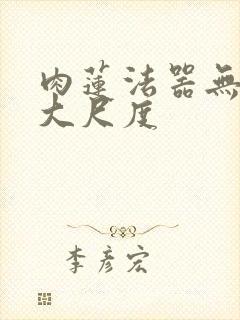 肉蓮法器無
大尺度
李彥宏